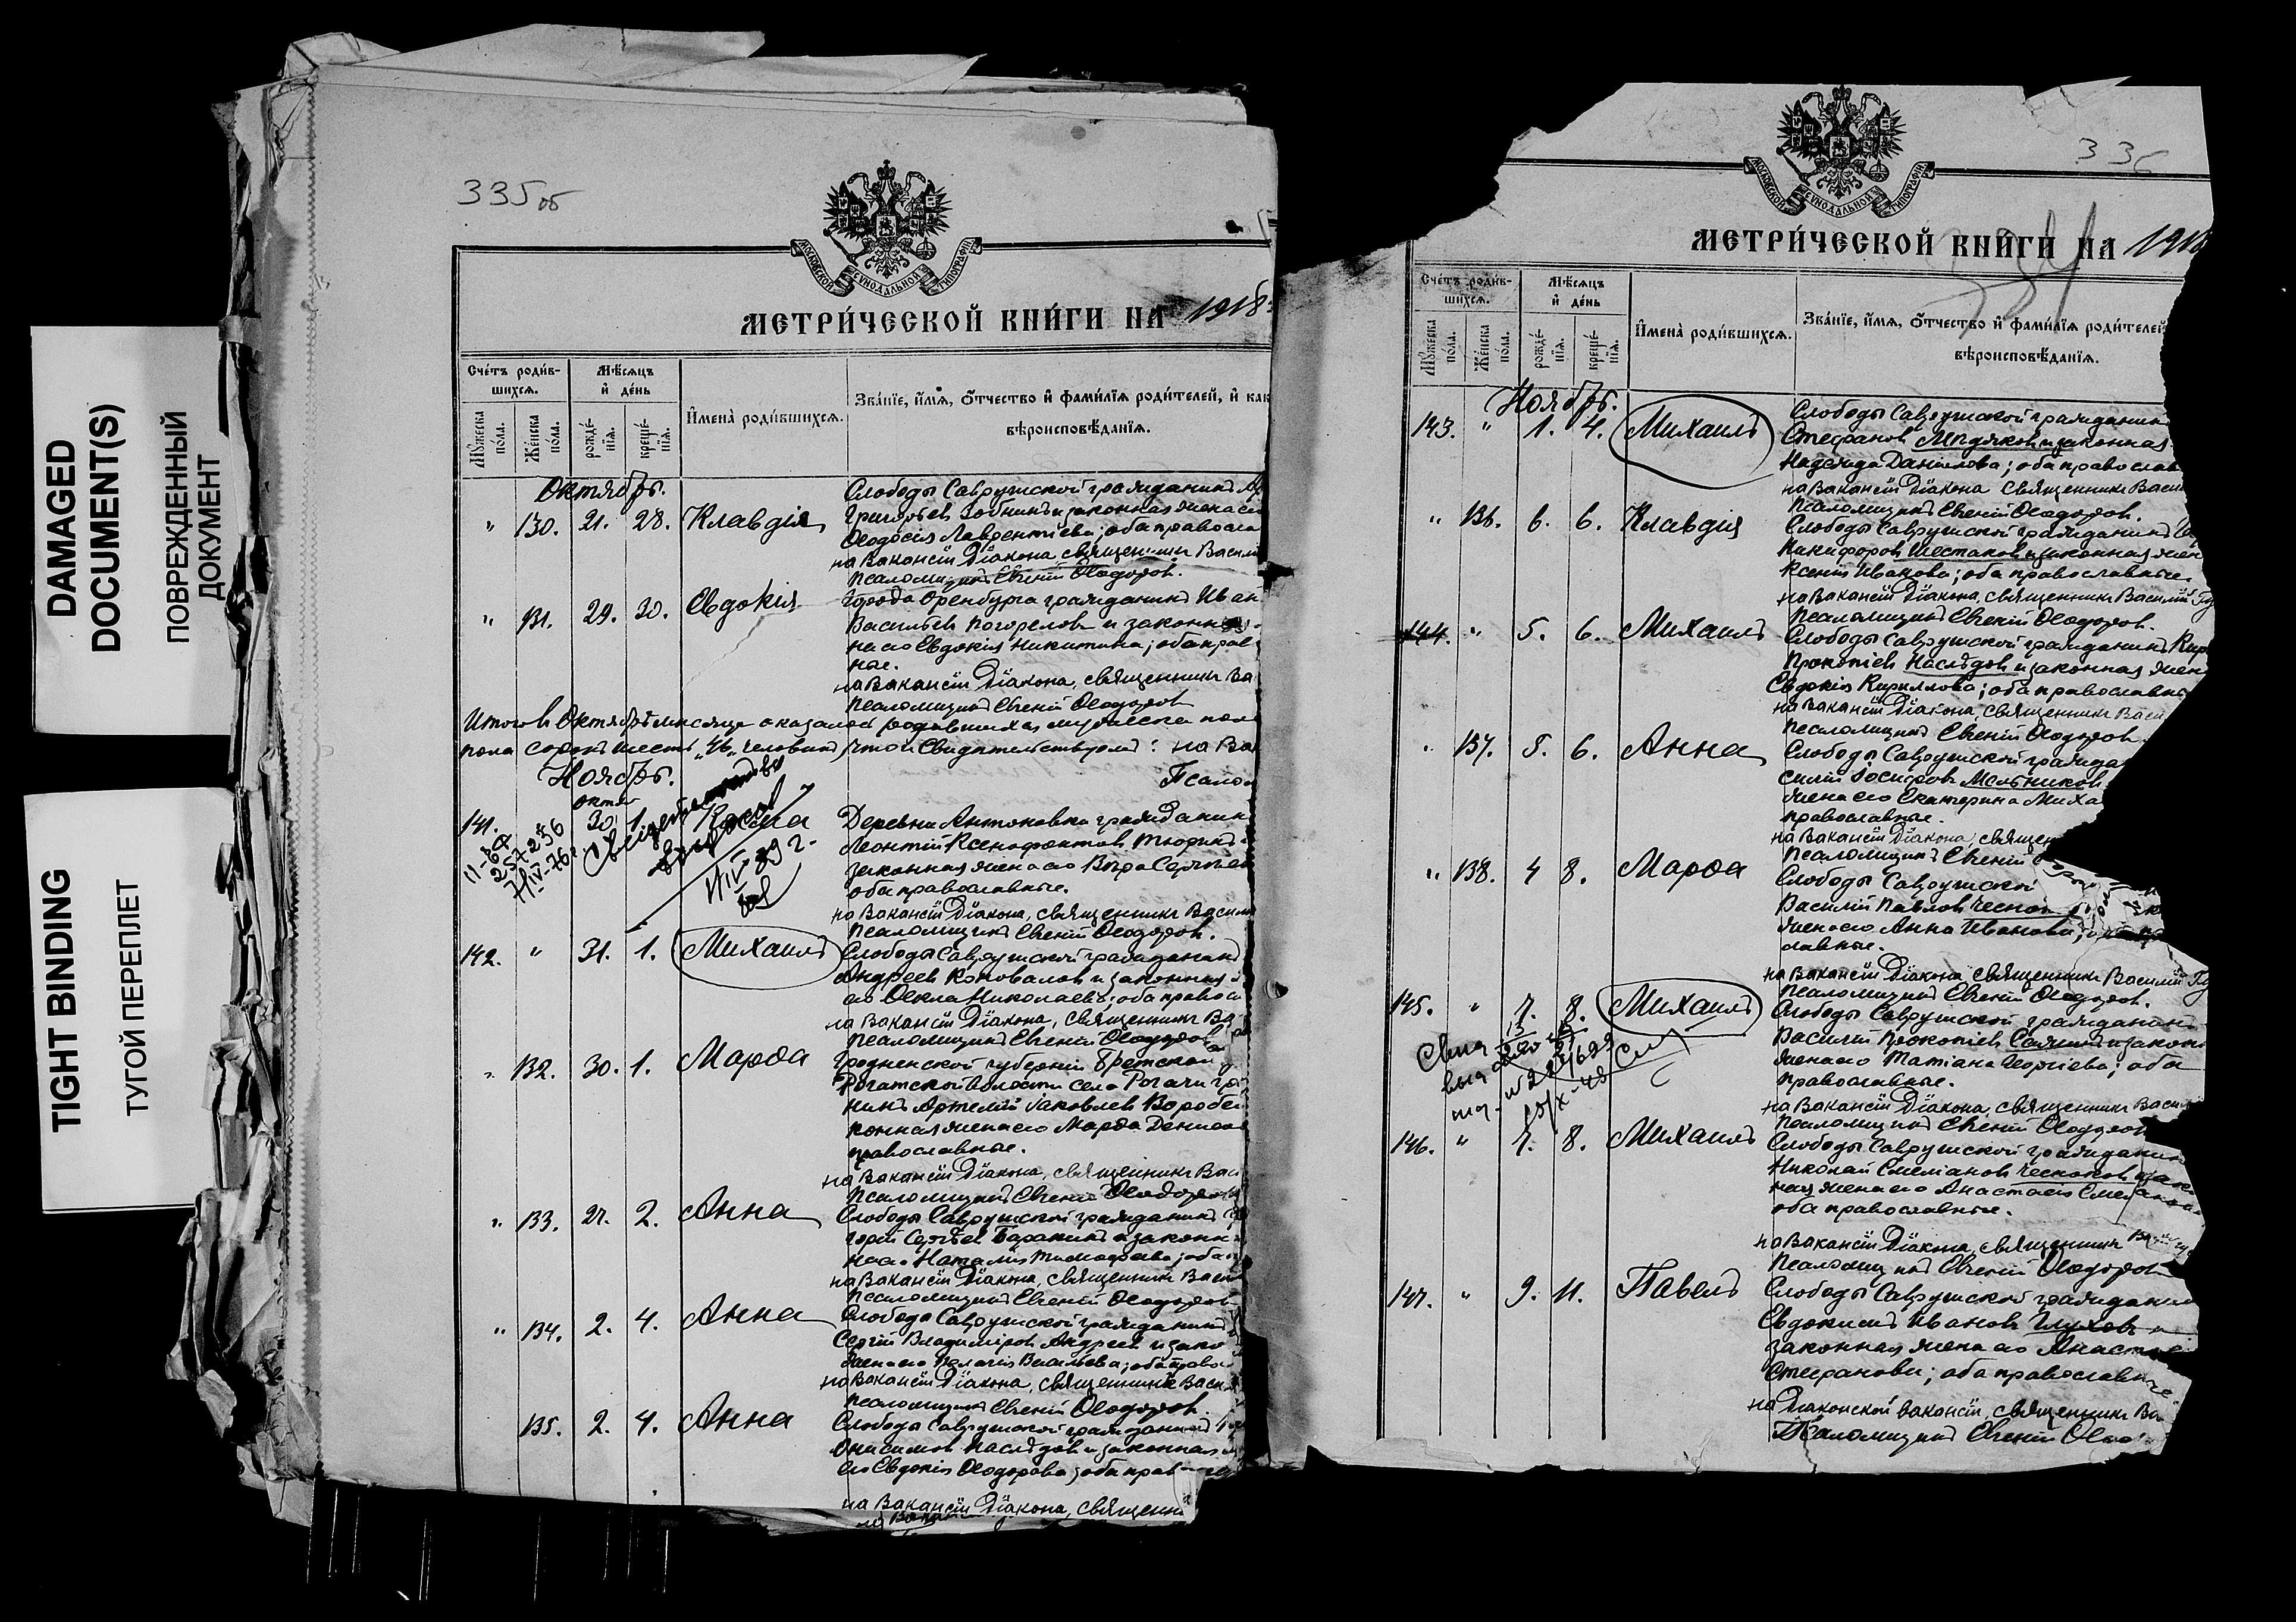 DAMAGED
DOCUMENT(S)
ПОВРЕЖДЕННЫЙ
ДОКУМЕНТ
TIGHT BINDING
ТУГОЙ ПЕРЕПЛЕТ
335об
МОСКОВСКОЙ СѴНОДАЛЬНОЙ ТИПОГРАФІИ
МЕТРИ́ЧЕСКОЙ КНИ́ГИ НА 1918
Сче́тъ роди́в-
шихсѧ.
Мѣ́сѧцъ
и҆ де́нь
И҆мена̀ роди́вшихсѧ.
Зва́нїе, и҆́мѧ, ѻ҆́тчество и҆ фами́лїѧ роди́телей, и҆ как
вѣроисповѣ́данїѧ.
Мꙋ́жеска
по́ла.
Же́нска
по́ла.
рожде́-
нїѧ.
креще́-
нїѧ.
Октябрь.
" 130. 21. 28. Клавдія
Слободы Саврушской гражданинъ
Григорьевъ Зобнинъ и законная жена его
Ѳеодосія Лаврентіева; оба правосла
на Вакансіи Діакона священникъ Васил
Псаломщикъ Евгеній Ѳеодоровъ.
" 131. 29. 30. Евдокія
Города Оренбурга гражданинъ Иван
Васильевъ Погореловъ и законн
на его Евдокія Никитина; оба прав
ные.
на Вакансіи Діакона, священникъ Ва
Псаломщикъ Евгеній Ѳеодоровъ
Итого въ Октябрѣ мѣсяце оказалось родившихся мужеска пол
пола сорокъ шесть "46" человѣкъ, что и свидѣтельствуемъ: на Ва
Ноябрь. Псалом
октяб
141. 30. 1.
11-ба
257256
7/IV-76
Свидетельство
11/IV 39 г.
Деревни Антоновки гражданин
Леонтій Ксенофонтовъ Тюринъ
законная жена его Вѣра Сергѣев
оба православные.
на Вакансіи Діакона, священникъ Васил
Псаломщикъ Евгеній Ѳеодоровъ.
142. " 31. 1. Михаилъ
Слободы Саврушской гражданинъ
Андреевъ Коноваловъ и законная
его Ѳекла Николаева; оба правосл
на Вакансіи Діакона, священникъ Ва
Псаломщикъ Евгеній Ѳеодоров
" 132. 30. 1. Марѳа
Гродненской губерніи Бретской
Рогатской волости села Рогачи гра
нинъ Артемій Іаковлевъ Воробе
конная жена его Марѳа Денисов
православные.
на Вакансіи Діакона, священникъ Вас
Псаломщикъ Евгеній Ѳеодоров
" 133. 27. 2. Анна
Слободы Саврушской гражданинъ
горій Сергѣевъ Баранинъ и законн
на его Наталія Тимофеева; оба п
на Вакансіи Діакона, священникъ Васил
Псаломщикъ Евгеній Ѳеодоров
" 134. 2. 4. Анна
Слободы Саврушской гражданинъ
Сергій Владиміровъ Андреевъ и зако
жена его Пелагія Васильева; оба право
на Вакансіи Діакона, священникъ Васил
Псаломщикъ Евгеній Ѳеодоровъ.
135. 2. 4. Анна
Слободы Саврушской гражданинъ
Онисимовъ Наслѣдовъ и законная
его Евдокія Ѳеодорова; оба прав
на Вакансіи Діакона, священни
336
МОСКОВСКОЙ СѴНОДАЛЬНОЙ ТИПОГРАФІИ
МЕТРИ́ЧЕСКОЙ КНИ́ГИ НА 1918
Сче́тъ роди́в-
шихсѧ.
Мѣ́сѧцъ
и҆ де́нь
И҆мена̀ роди́вшихсѧ.
Зва́нїе, и҆́мѧ, ѻ҆́тчество и҆ фами́лїѧ роди́телей
вѣроисповѣ́данїѧ.
Мꙋ́жеска
по́ла.
Же́нска
по́ла.
рожде́-
нїѧ.
креще́-
нїѧ.
Ноябрь.
143. " 1. 4. Михаилъ
Слободы Саврушской гражданинъ
Стефановъ и законная
Надежда Даніилова; оба православ
на Вакансіи Діакона священникъ Васил
Псаломщикъ Евгеній Ѳеодоровъ.
" 136. 6. 6. Клавдія
Слободы Саврушской гражданинъ
Никифоровъ Шестаковъ и законная жен
Ксенія Иванова; оба православные.
на Вакансіи Діакона, священникъ Василій
Псаломщикъ Евгеній Ѳеодоровъ.
144. " 5. 6. Михаилъ
Слободы Саврушской гражданинъ Кир
Прокопіевъ Наслѣдовъ и законная жен
Евдокія Кириллова; оба православны
на Вакансіи Діакона, священникъ Васи
Псаломщикъ Евгеній Ѳеодоровъ.
" 137. 5. 6. Анна
Слободы Саврушской граждан
силій Іосифовъ Мельников
жена его Екатерина Миха
православные.
на Вакансіи Діакона, священ
Псаломщикъ Евгеній
" 138. 4 8. Марѳа
Слободы Саврушской
Василій Павловъ Чесноков
жена его Анна Иванова;
славные.
на Вакансіи Діакона священникъ Василій
Псаломщикъ Евгеній Ѳеодоровъ.
145. " 7. 8. Михаилъ
Слободы Саврушской гражданинъ
Василій Прокопіевъ и закон
жена его Татіана Георгіева; оба
православные.
на Вакансіи Діакона, священникъ Васил
Псаломщикъ Евгеній Ѳеодоров
146. " 7. 8. Михаилъ
Слободы Саврушской гражданин
Николай Симеоновъ Чесноковъ и зако
ная жена его Анастасія
оба православные.
на Вакансіи Діакона, священникъ
Псаломщикъ Евгеній Ѳеодоров
147. " 9. 11. Павелъ
Слободы Саврушской гражданин
Евдокимъ Ивановъ Глуховъ и
законная жена его Анаста
Стефанова; оба православные
на Діаконской вакансіи, священникъ Ва
Псаломщикъ Евгеній Ѳео